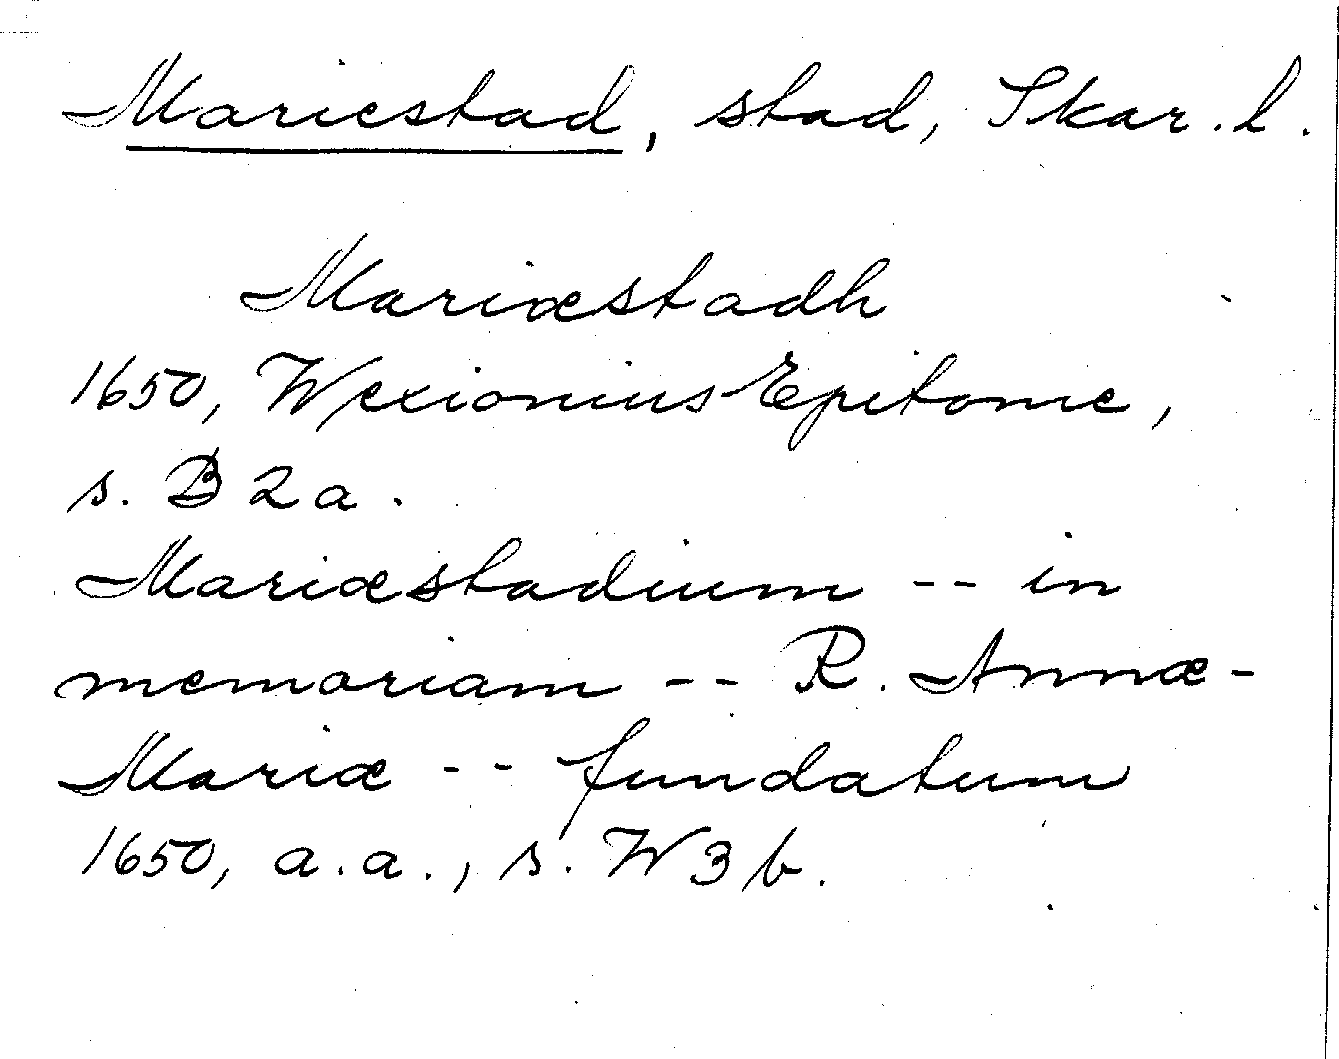 Mariestad, stad, Skar. l.
Mariæstadh
1650, Wexionius Epitome,
s. B 2 a.
Mariæstadium -- in
memoriam -- R. Annæ-
Mariæ -- fundatum
1650, a.a., s. W 3 b.